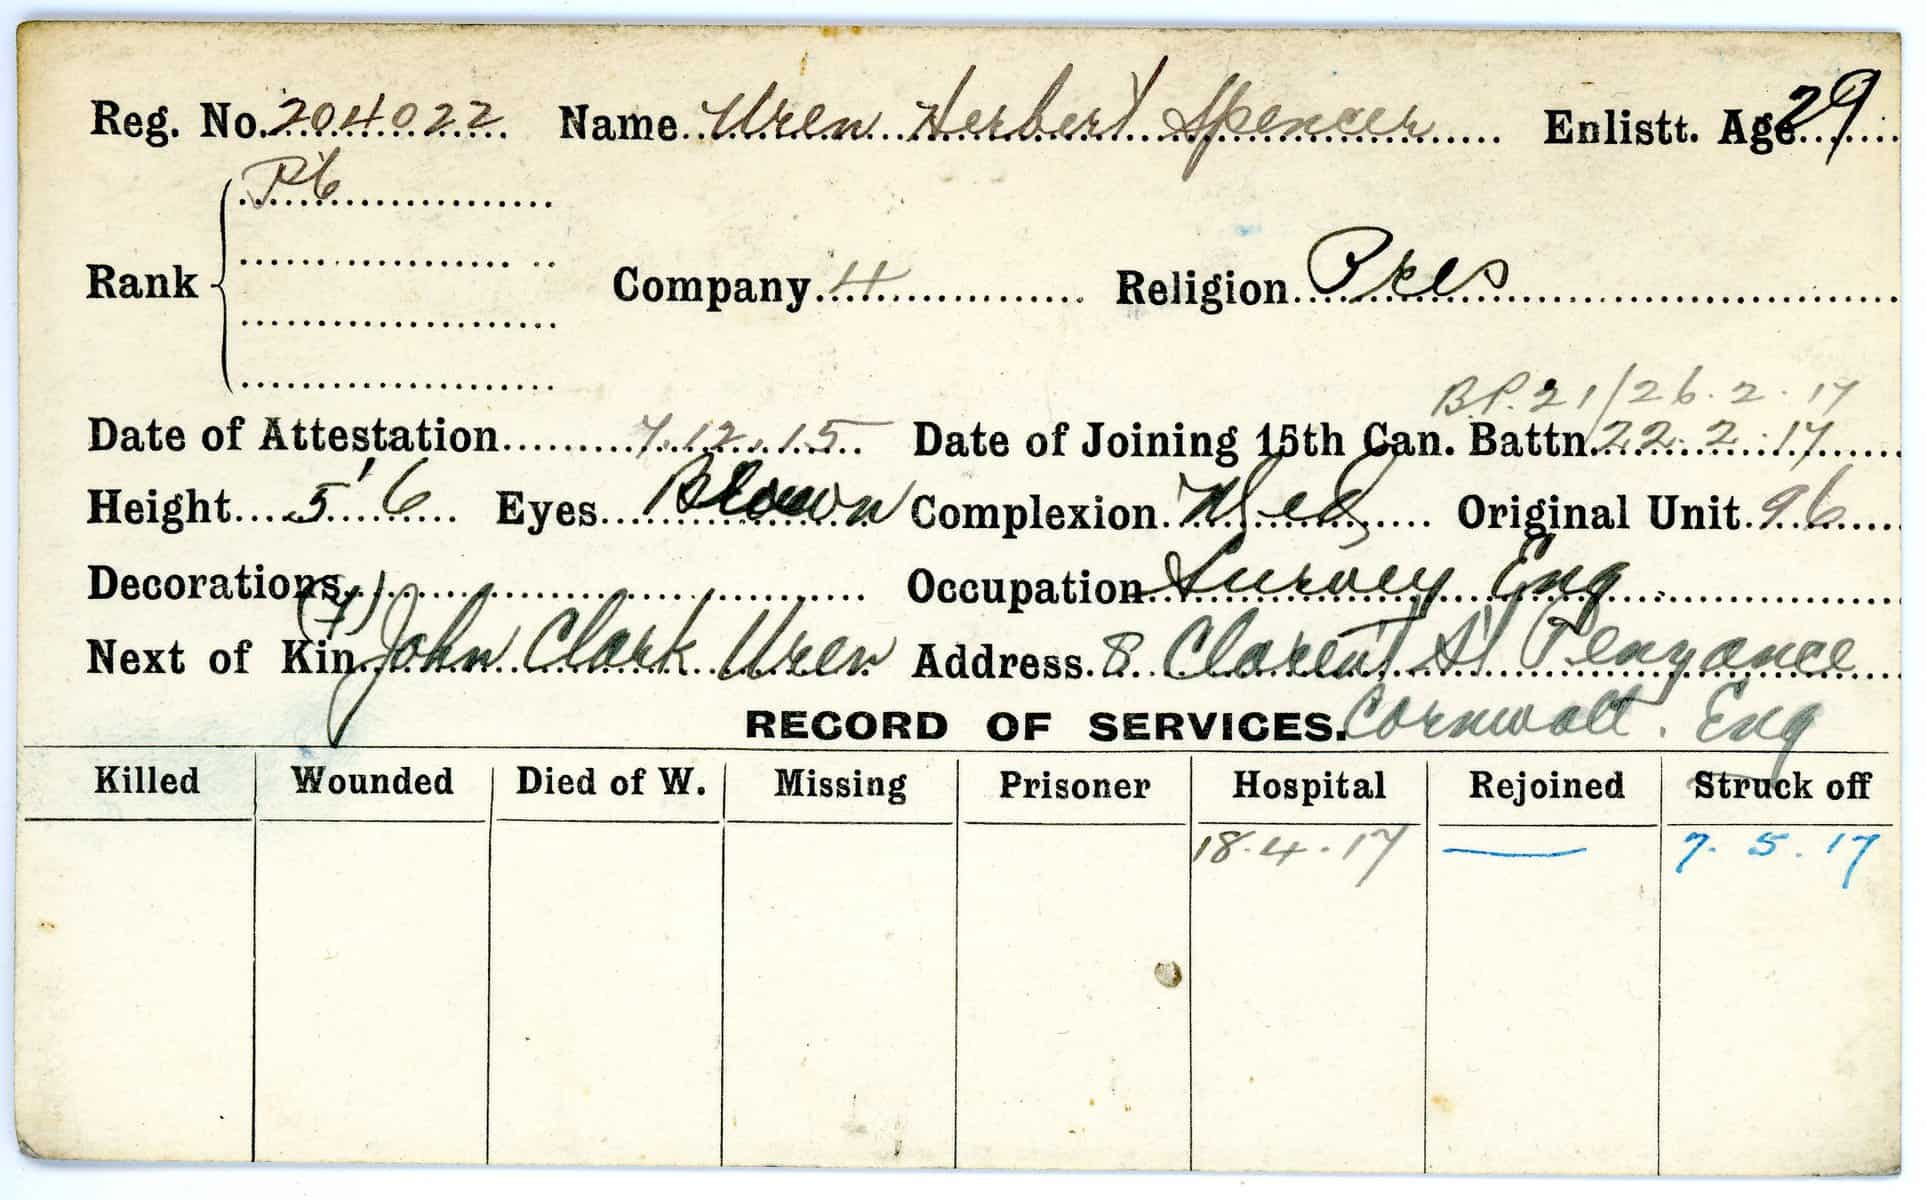 Reg. No. 204022 Name Uren Herbert Spencer Enlistt. Age 29
Pte
Rank Company 4 Religion Pres
B.P. 21/26.2.17
Date of Attestation 7.12.15 Date of Joining 15th Can. Battn. 22.2.17
Height 5'6 Eyes Brown Complexion Med Original Unit 96
Decorations Occupation Survey Eng
Next of Kin (F) John Clark Uren Address 8 Claren't St Penzance
RECORD OF SERVICES. Cornwall. Eng
Killed Wounded Died of W. Missing Prisoner Hospital Rejoined Struck off
18.4.17 — 7.5.17